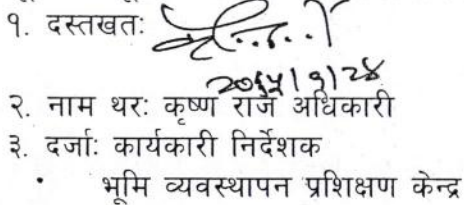 १. दस्तखतः
२. नाम थरः कृष्ण राज अधिकारी
३. दर्जाः कार्यकारी निर्देशक
• भूमि व्यवस्थापन प्रशिक्षण केन्द्र